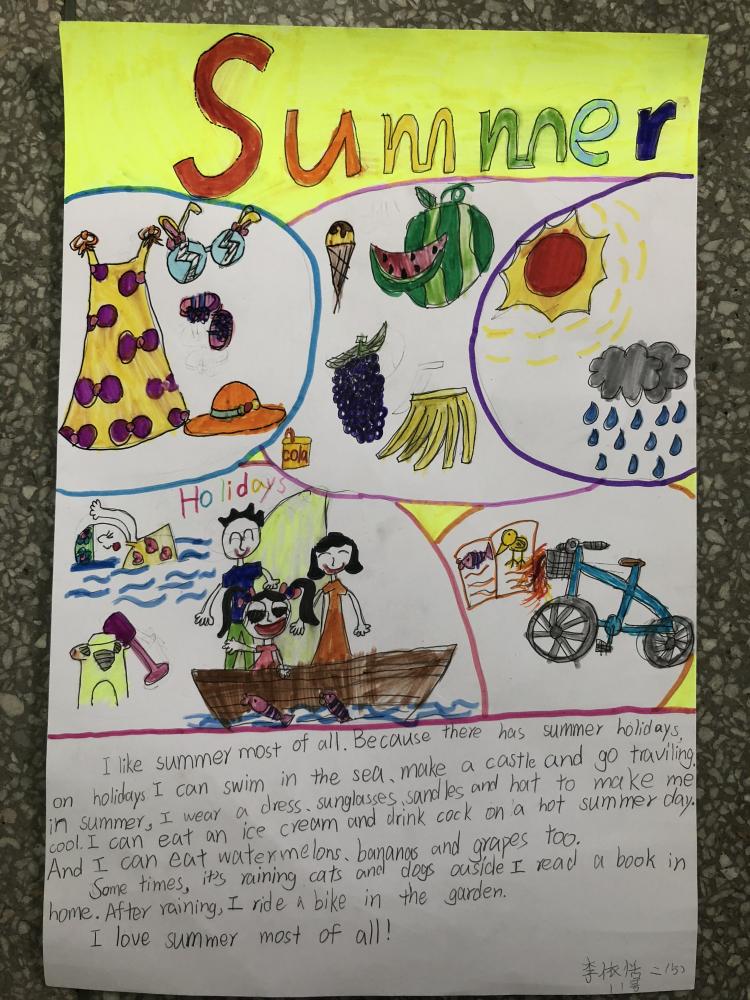 Summer
cola
Holidays
I like summer most of all. Because there has summer holidays,
on holidays I can swim in the sea、make a castle and go traviling.
in summer, I wear a dress、sunglasses、sandles and hat to make me
cool. I can eat an ice cream and drink cock on a hot summer day.
And I can eat watermelons、bananas and grapes too.
Some times, it's raining cats and dogs ouside I read a book in
home. After raining, I ride a bike in the garden.
I love summer most of all!
李依恬 二(5)
11号